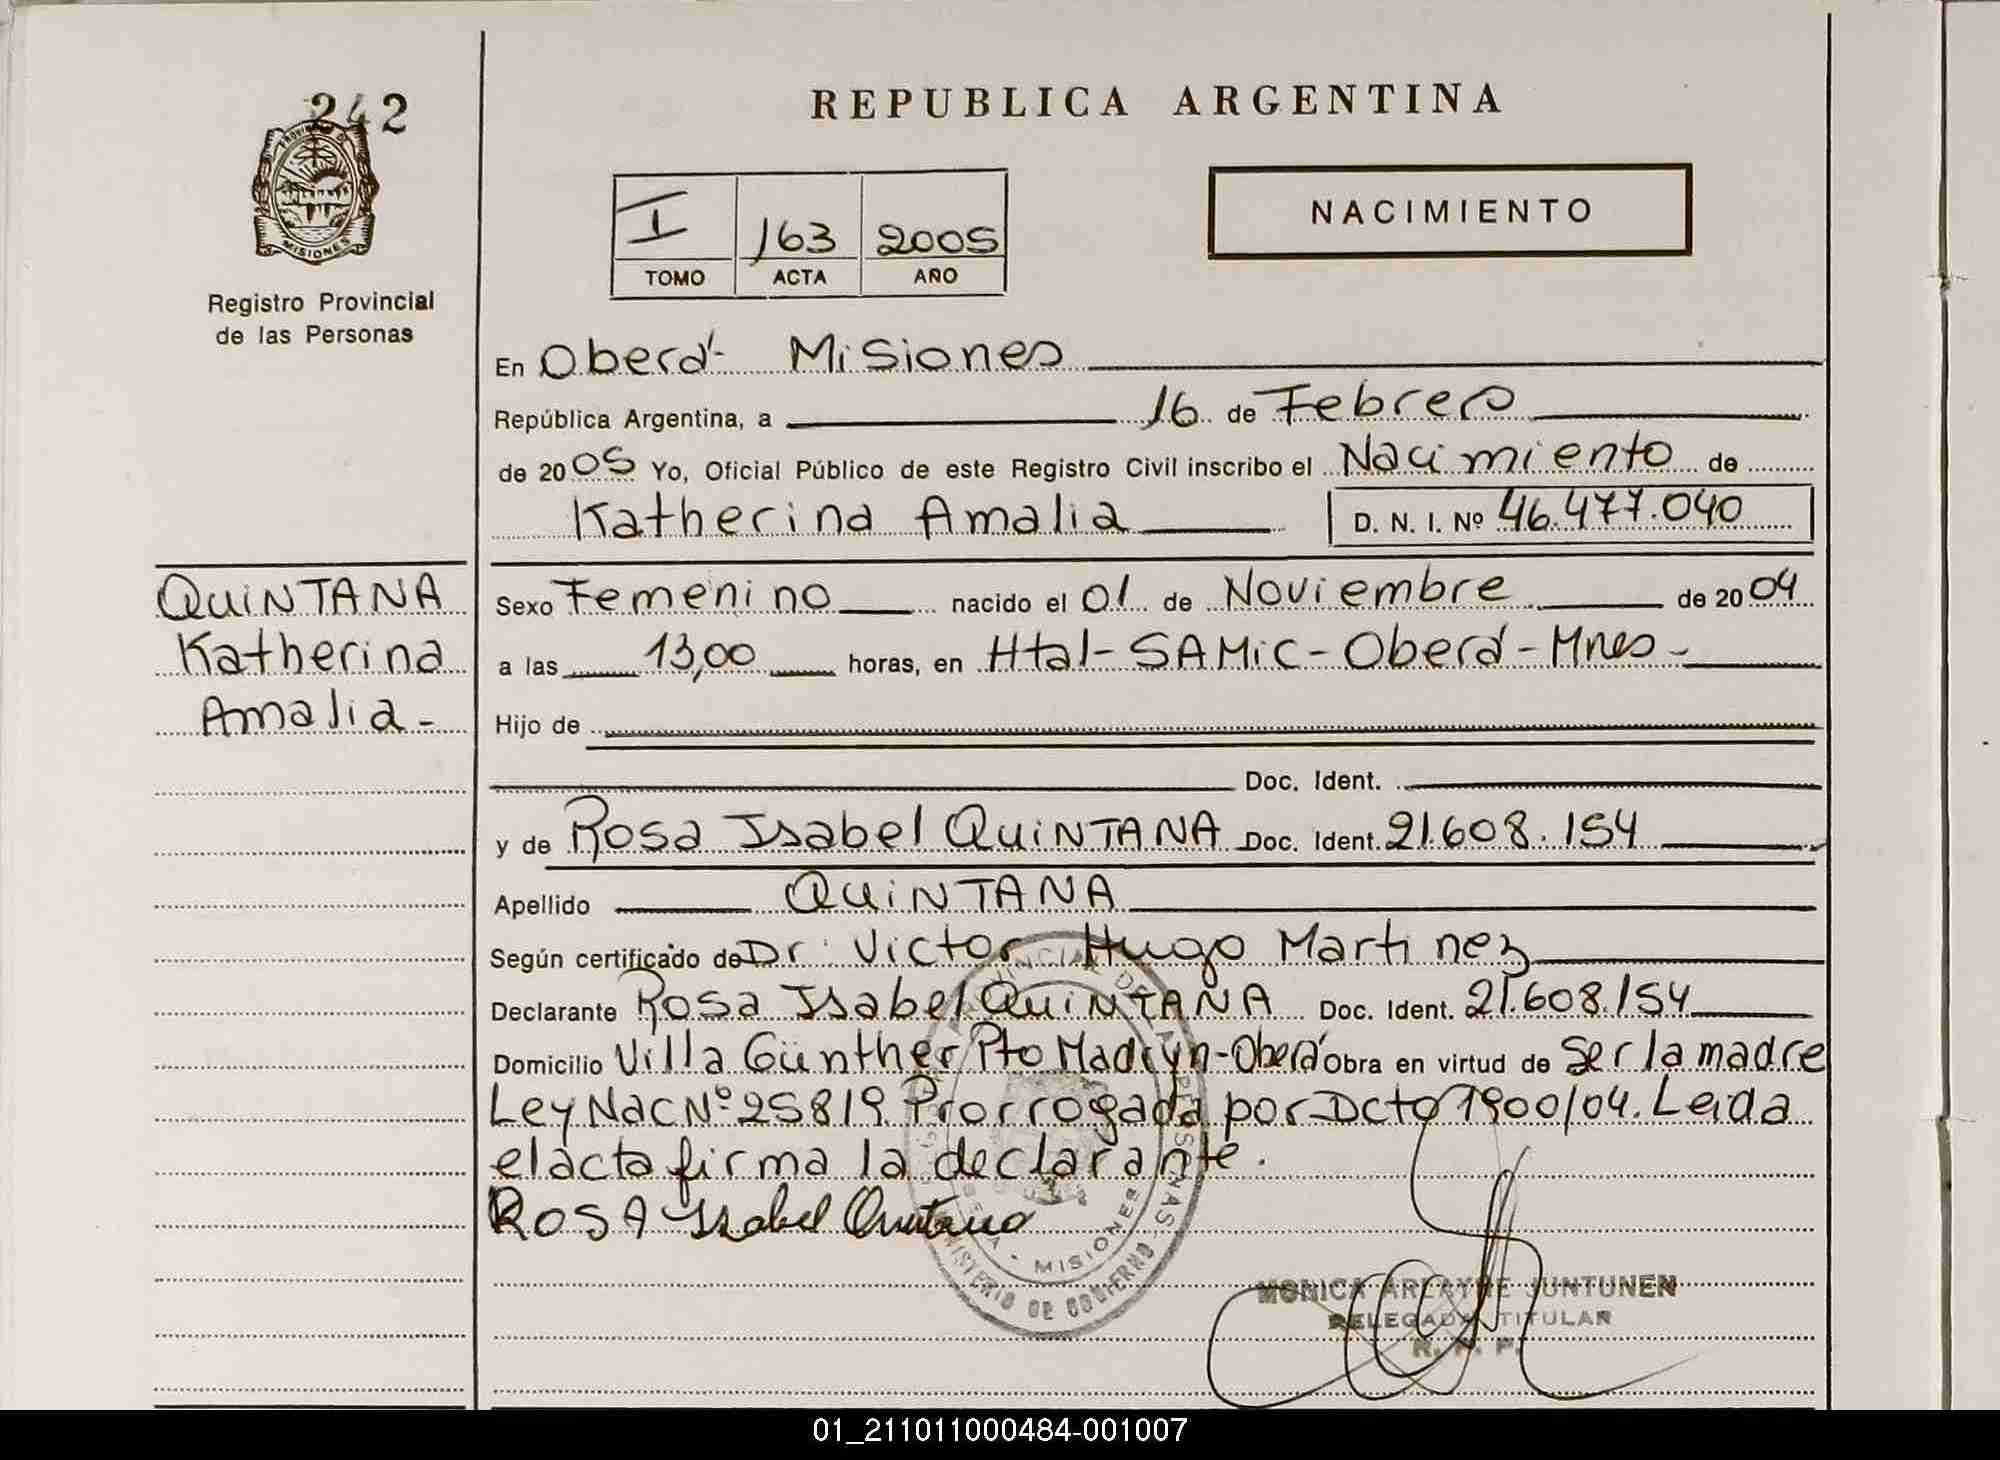 242
PROVINCIA DE
MISIONES
Registro Provincial
de las Personas
REPUBLICA ARGENTINA
I 163 2005
TOMO ACTA AÑO
NACIMIENTO
En Oberá- Misiones
República Argentina, a 16 de Febrero
de 2005 Yo, Oficial Público de este Registro Civil inscribo el Nacimiento de
Katherina Amalia D. N. I. Nº 46.477.040
QUINTANA
Katherina
Amalia-
Sexo Femenino nacido el 01 de Noviembre de 2004
a las 13,00 horas, en Htal-SAMiC-Oberá-Mnes-
Hijo de
Doc. Ident.
y de Rosa Isabel QUINTANA Doc. Ident. 21.608.154
Apellido QUINTANA
Según certificado de Dr. Victor Hugo Martinez
Declarante Rosa Isabel QUINTANA Doc. Ident. 21.608.154
Domicilio Villa Günther Pto Madryn-Oberá Obra en virtud de ser la madre
Ley Nac Nº 25819 Prorrogada por Dcto 1900/04. Leida
el acta firma la declarante.
ROSA Isabel Quintana
MINISTERIO DE GOBIERNO
MISIONES
MONICA ARLAYNE JUNTUNEN
DELEGADA TITULAR
R. P. P.
01_211011000484-001007